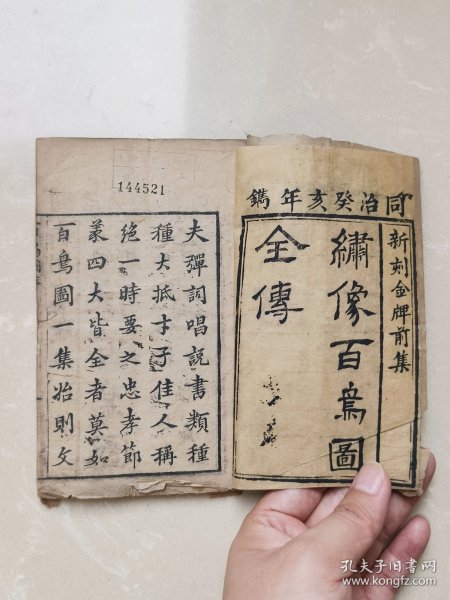 同治癸亥年鐫
新刻金牌前集
繡像百鳥圖
全傳
144521
夫彈詞唱説書類種
種大抵才子佳人稱
絶一時要之忠孝節
義四大皆全者莫如
百鳥圖一集始則文
孔夫子旧书网
www.kongfz.com